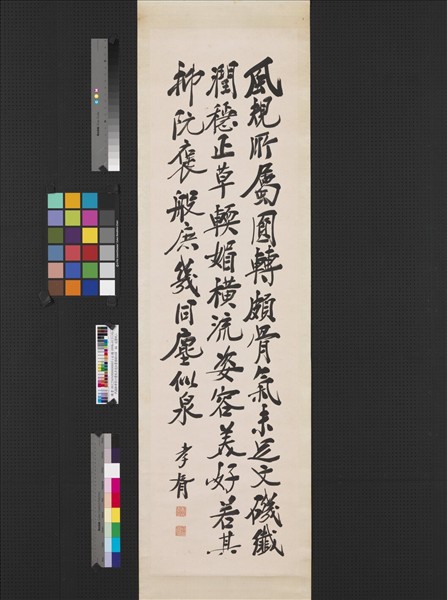 風規所屬圓轉頗骨氣未足文磯纖
潤穩正草輭媚橫流姿容美好若其
抑阮褒般庶幾同塵似泉
孝胥